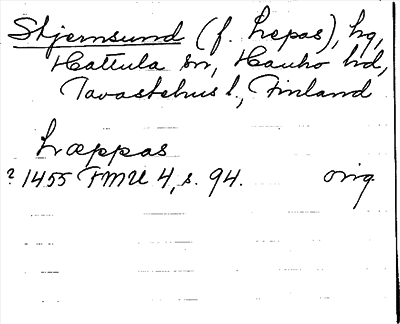 Stjernsund (f. Lepas), hg,
Hattula sn, Hauho hd,
Tavastehus l., Finland
Læppas
? 1455 FMU 4, s. 94. orig